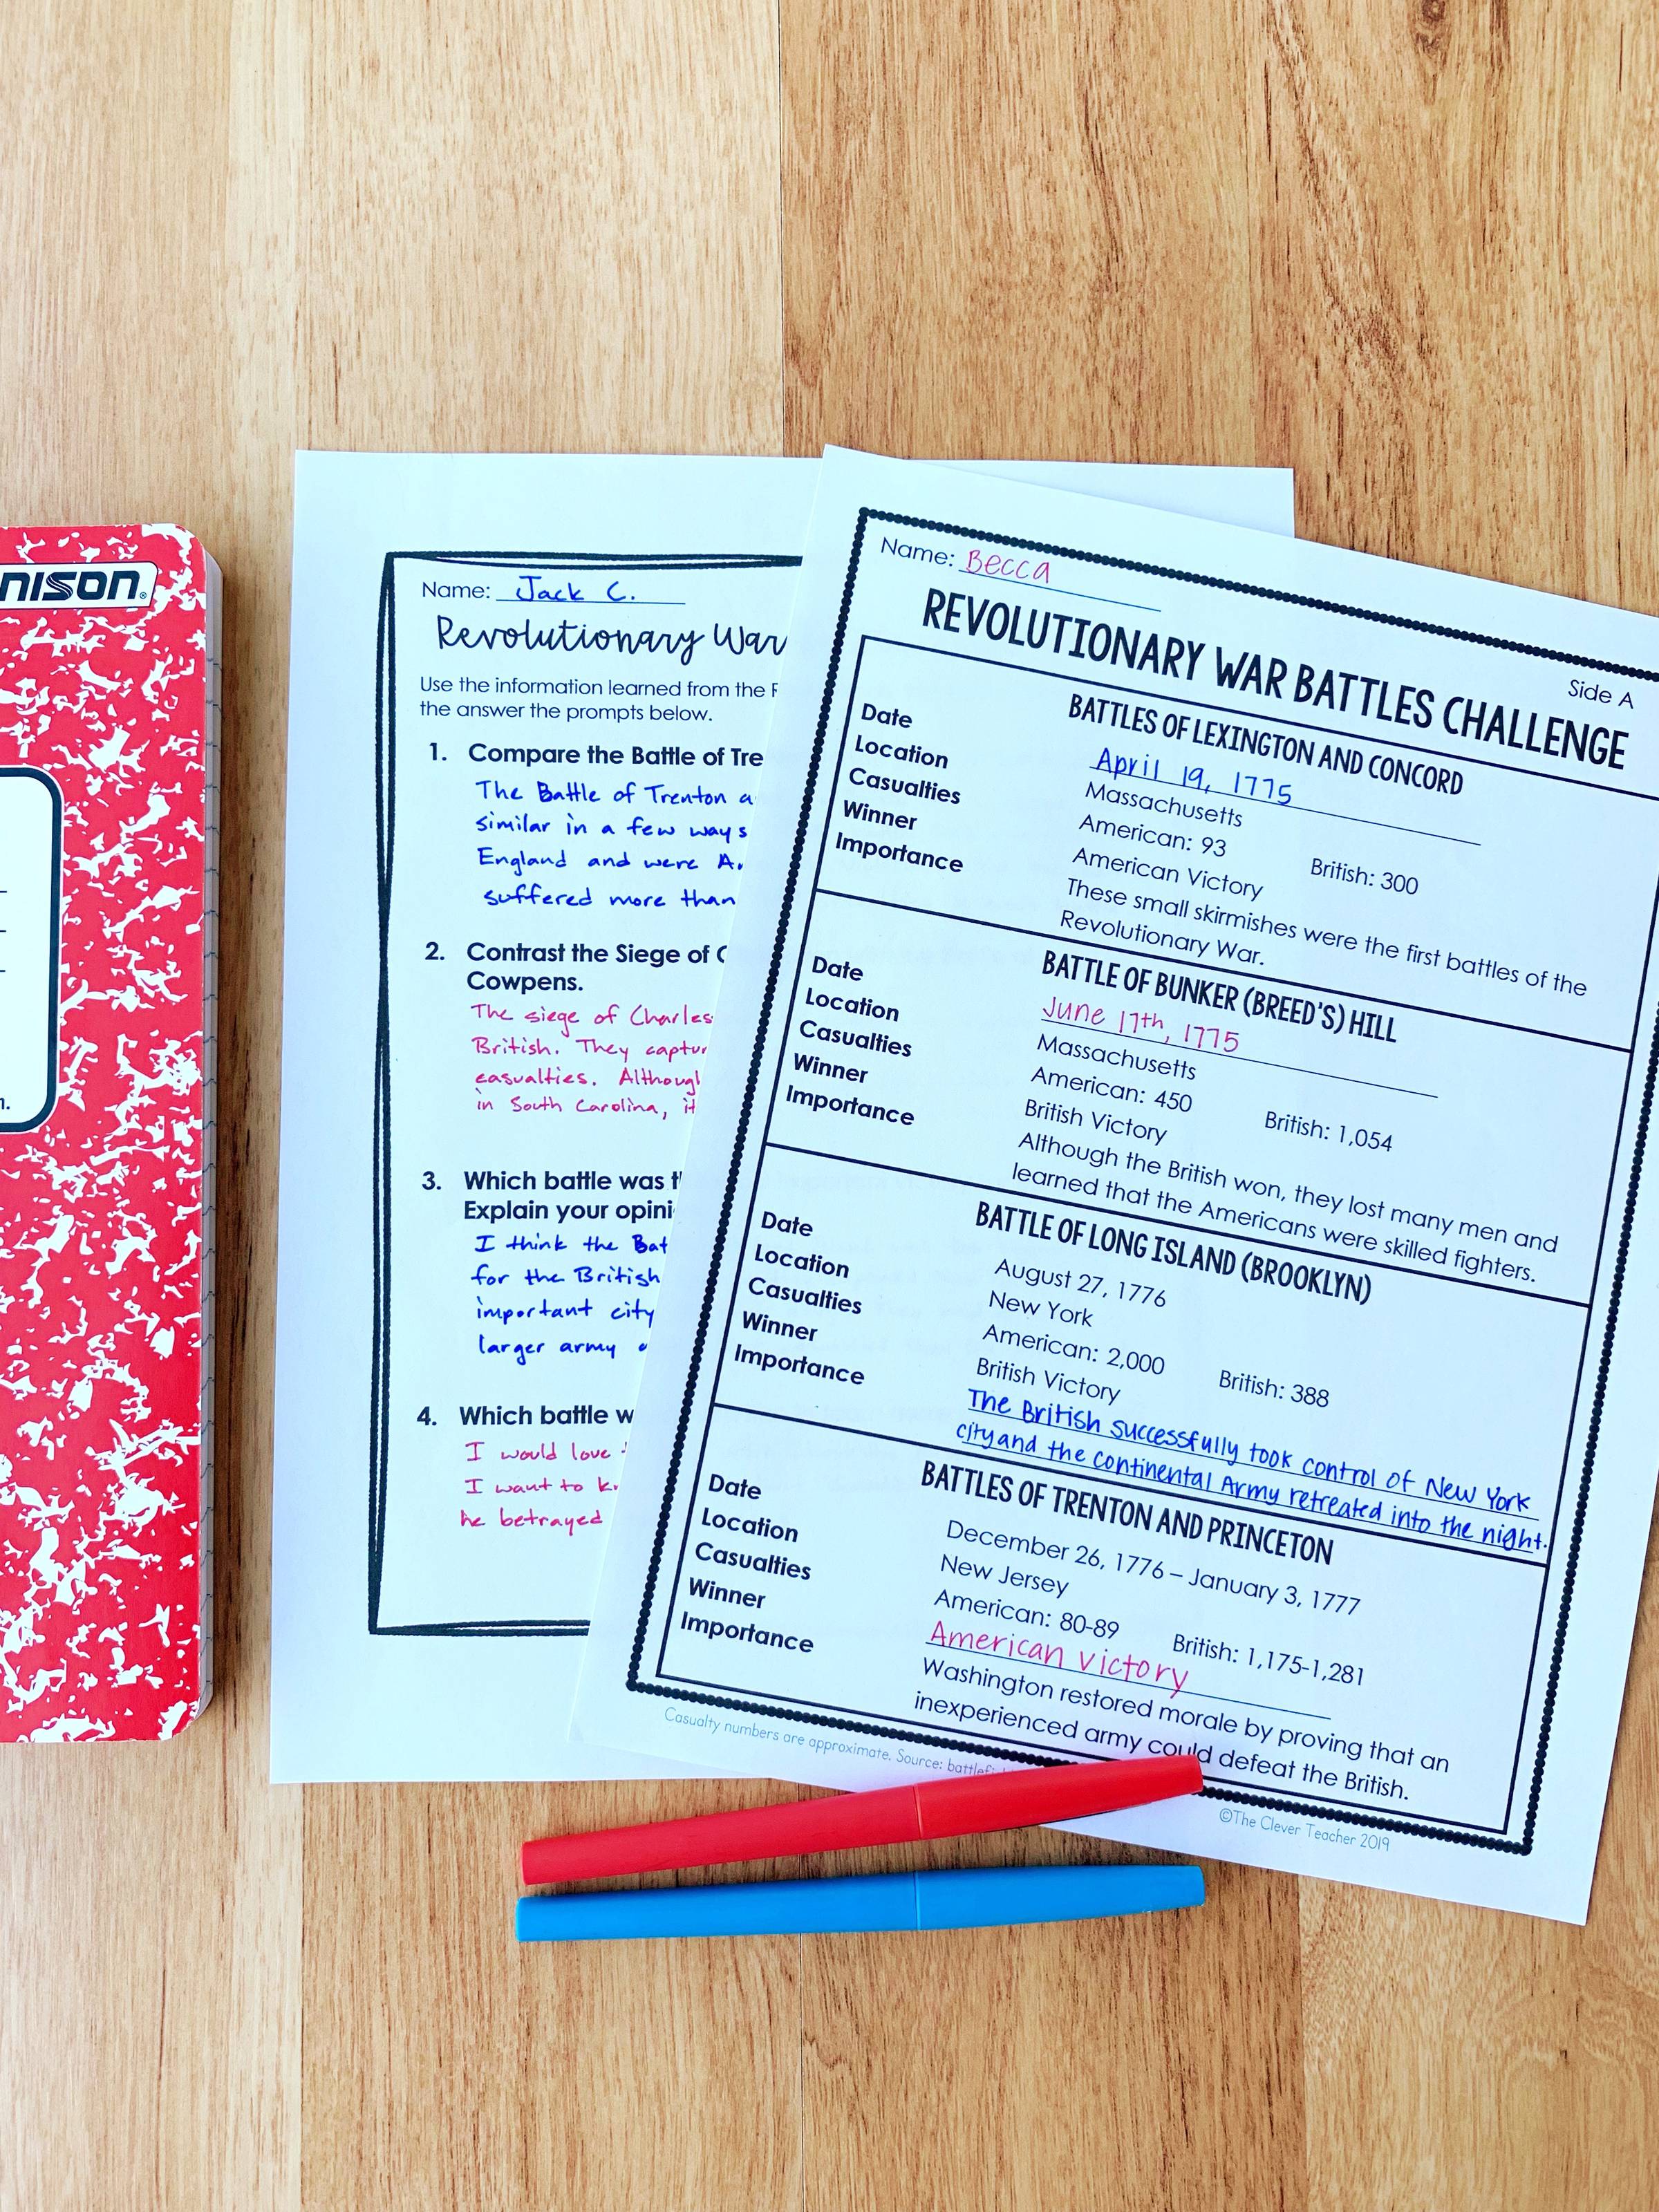 NISON
Name: Jack C.
Revolutionary War
Use the information learned from the
the answer the prompts below.
1. Compare the Battle of
The Battle of Trenton
similar in a few ways
England and were
suffered more than
2. Contrast the Siege of
Cowpens.
The siege of
British. They
casualties.
in South Carolina, it
3. Which battle was
Explain your
I think the
for the British
important city
larger army
4. Which battle
I would love
I want to
he betrayed
Name: Becca
Side A
REVOLUTIONARY WAR BATTLES CHALLENGE
BATTLES OF LEXINGTON AND CONCORD
Date April 19, 1775
Location Massachusetts
Casualties American: 93 British: 300
Winner American Victory
Importance These small skirmishes were the first battles of the
Revolutionary War.
BATTLE OF BUNKER (BREED'S) HILL
Date June 17th, 1775
Location Massachusetts
Casualties American: 450 British: 1,054
Winner British Victory
Importance Although the British won, they lost many men and
learned that the Americans were skilled fighters.
BATTLE OF LONG ISLAND (BROOKLYN)
Date August 27, 1776
Location New York
Casualties American: 2,000 British: 388
Winner British Victory
Importance The British successfully took control of New York
city and the continental Army retreated into the night.
BATTLES OF TRENTON AND PRINCETON
Date December 26, 1776 – January 3, 1777
Location New Jersey
Casualties American: 80-89 British: 1,175-1,281
Winner American victory
Importance Washington restored morale by proving that an
inexperienced army could defeat the British.
Casualty numbers are approximate. Source:
©The Clever Teacher 2019